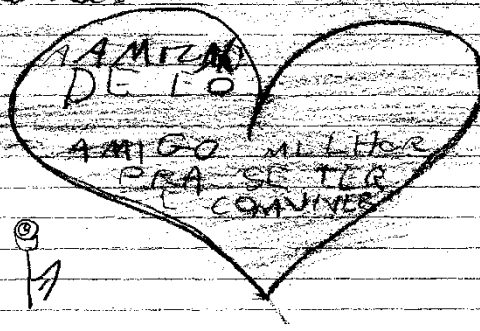 A AMIZAD
DE EO
AMIGO MILHOR
PRA SE TER
E COMVIVER